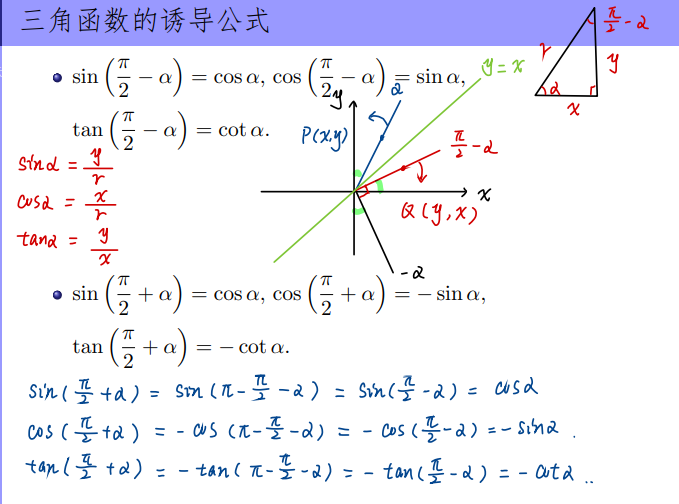 三角函数的诱导公式
sin(π/2 − α) = cos α, cos(π/2 − α) = sin α,
tan(π/2 − α) = cot α.
π/2 - α
r
y
α
x
y = x
α
y
P(x,y)
π/2 - α
x
Q(y,x)
-α
sinα = y/r
cosα = x/r
tanα = y/x
sin(π/2 + α) = cos α, cos(π/2 + α) = − sin α,
tan(π/2 + α) = − cot α.
sin(π/2 + α) = sin(π - π/2 - α) = sin(π/2 - α) = cosα
cos(π/2 + α) = - cos(π - π/2 - α) = - cos(π/2 - α) = - sinα.
tan(π/2 + α) = - tan(π - π/2 - α) = - tan(π/2 - α) = - cotα..